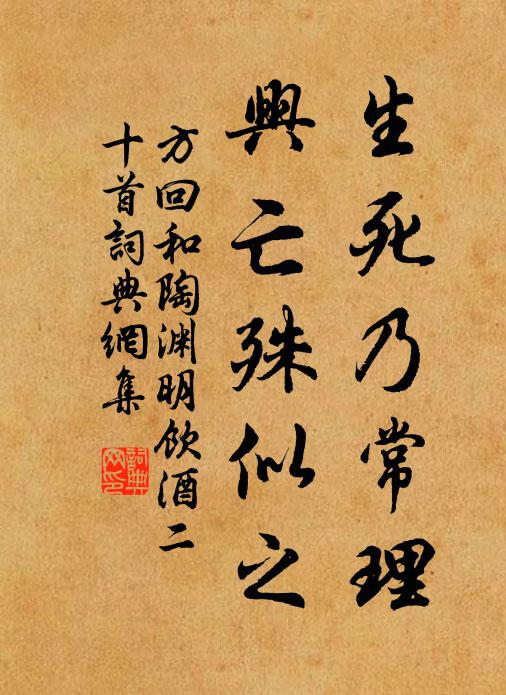 生死乃常理
興亡殊似之
方回和陶淵明飲酒二
十首詞典網集
詞典網印